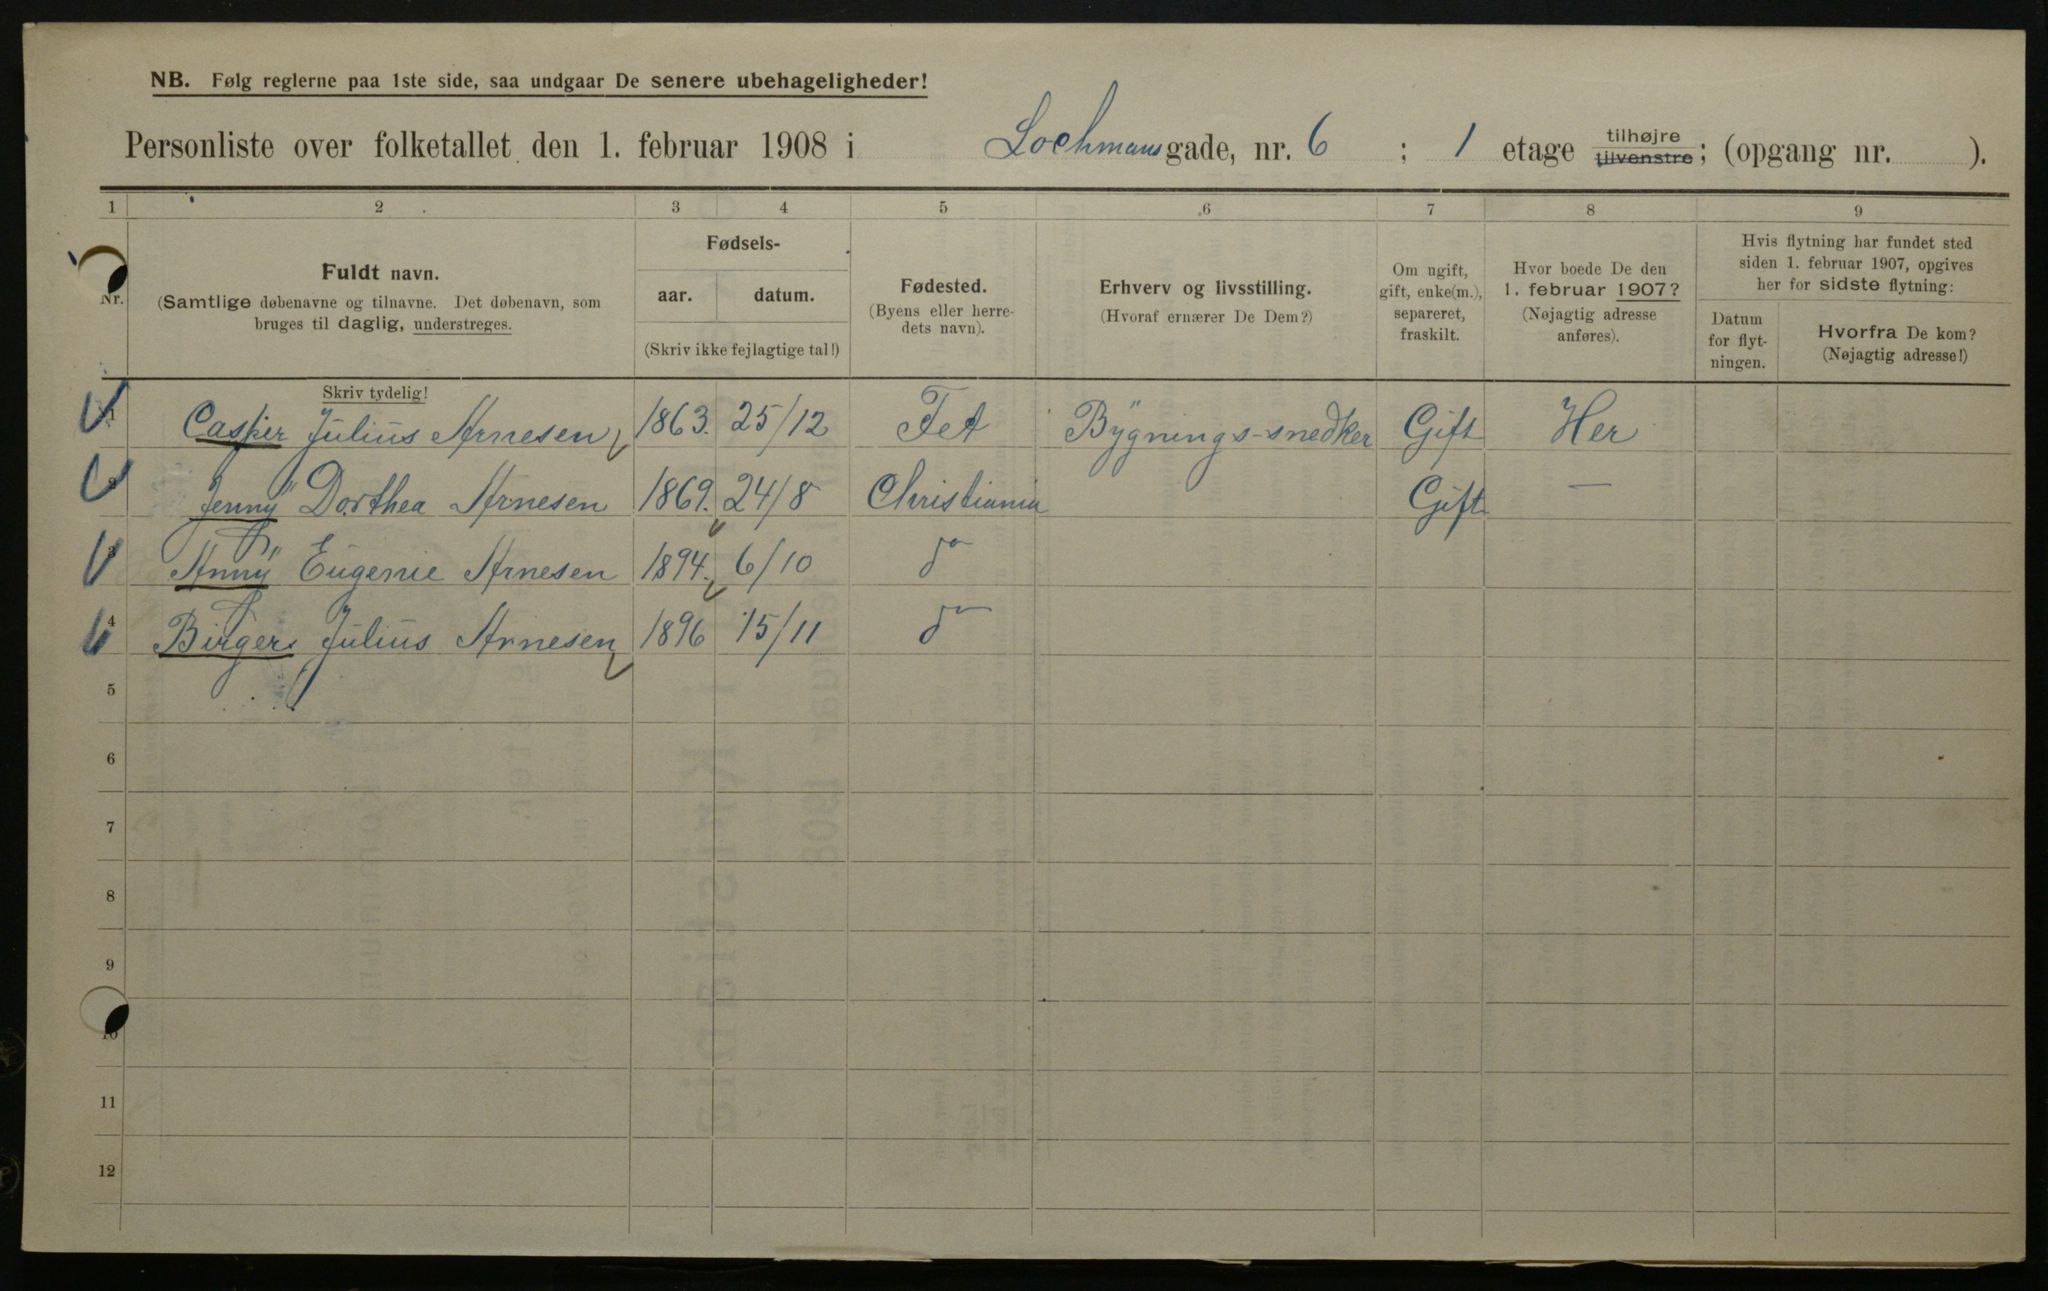 NB. Følg reglerne paa 1ste side, saa undgaar De senere ubehageligheder!
Personliste over folketallet den 1. februar 1908 i Lochmansgade, nr. 6 ; 1 etage tilhøjre tilvenstre; (opgang nr. ).
1 2 3 4 5 6 7 8 9
Nr.
Fuldt navn.
(Samtlige døbenavne og tilnavne. Det døbenavn, som
bruges til daglig, understreges.
Skriv tydelig!
Fødsels-
aar. datum.
(Skriv ikke fejlagtige tal!)
Fødested.
(Byens eller herre-
dets navn).
Erhverv og livsstilling.
(Hvoraf ernærer De Dem?)
Om ugift,
gift, enke(m.),
separeret,
fraskilt.
Hvor boede De den
1. februar 1907?
(Nøjagtig adresse
anføres).
Hvis flytning har fundet sted
siden 1. februar 1907, opgives
her for sidste flytning:
Datum
for flyt-
ningen.
Hvorfra De kom?
(Nøjagtig adresse!)
1 Casper Julius Arnesen 1863. 25/12 Fet Bygnings-snedker Gift Her
2 Jenny Dorthea Arnesen 1869. 24/8 Christiania Gift —
3 Anny Eugenie Arnesen 1894. 6/10 do
4 Birger Julius Arnesen 1896 15/11 do
5
6
7
8
9
10
11
12